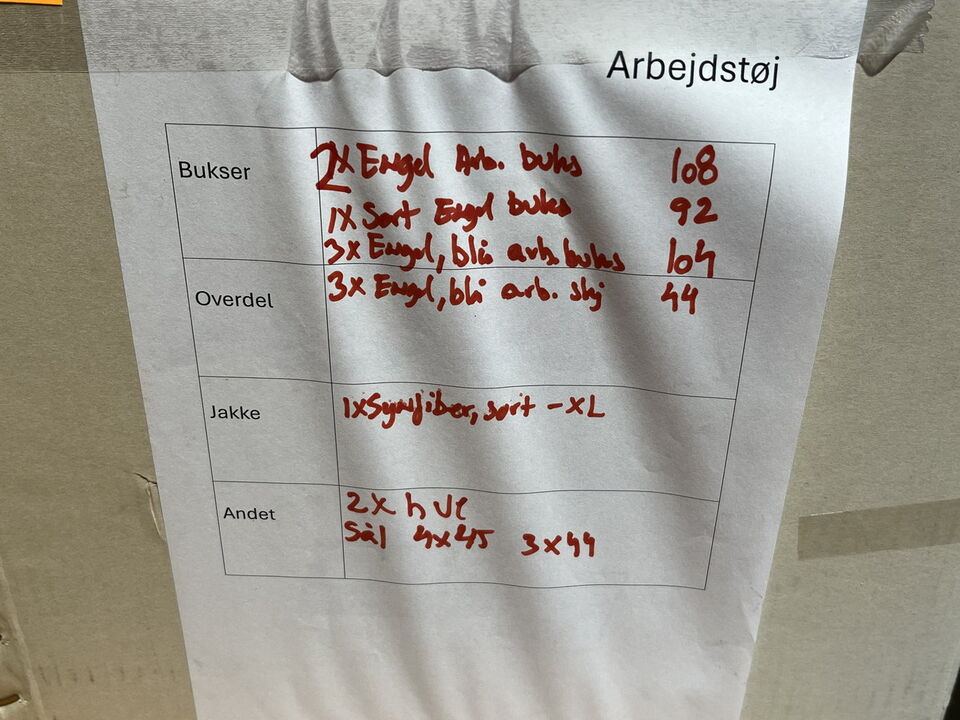 Arbejdstøj
Bukser 2x Engel Arb. buks 108
1x Sort Engel buks 92
3x Engel, blå arb. buks 104
Overdel 3x Engel, blå arb. skj 44
Jakke 1x Synfiber, sort - XL
Andet 2x hue
Sål 4x45 3x44